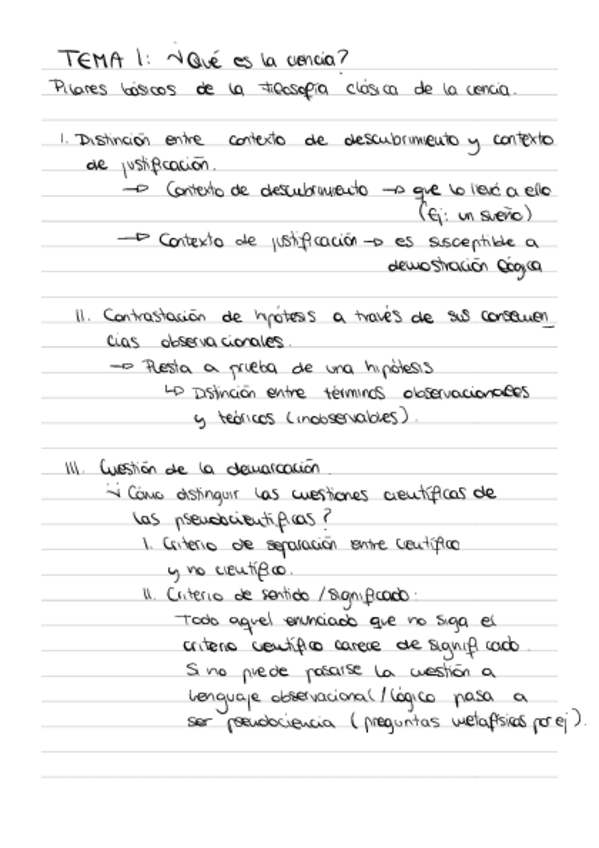 TEMA 1: ¿Qué es la ciencia?
Pilares básicos de la Filosofía clásica de la ciencia.
I. Distinción entre contexto de descubrimiento y contexto
de justificación.
→ Contexto de descubrimiento → que lo llevó a ello
(Ej: un sueño)
→ Contexto de justificación → es susceptible a
demostración lógica
II. Contrastación de hipótesis a través de sus consecuen
cias observacionales.
→ Puesta a prueba de una hipótesis
↳ Distinción entre términos observacionales
y teóricos (inobservables).
III. Cuestión de la demarcación.
¿Cómo distinguir las cuestiones científicas de
las pseudocientíficas?
I. Criterio de separación entre científico
y no científico.
II. Criterio de sentido / significado:
Todo aquel enunciado que no siga el
criterio científico carece de significado.
Si no puede pasarse la cuestión a
lenguaje observacional / lógico pasa a
ser pseudociencia (preguntas metafísicas por ej).